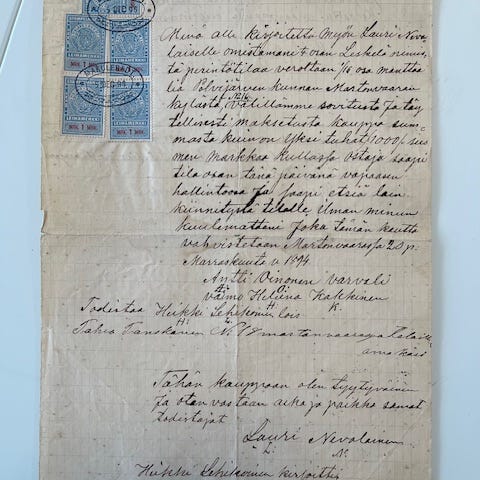 Minä alle kirjoitettu Myön Lauri Nevo
laiselle omistamane 4 osan Leskelä nimis
tä perintötilaa veroltaan 1/15 osa mantta
lia Polvijärven kunnan Martonvaaran
kylästä, No 16 välillämme sovitusta ja täy
dellisesti maksetusta kauppa sum
masta kuin on Yksi tuhat (1000/ suo
men Markkaa Kullassa ostaja saapi
tila osan tänä päivänä vapaasen
hallintoonsa ja saapi etsiä lain
kiinnitystä tilalle ilman minun
kuulemattani Joka tämän kautta
vahvistetaan Martonvaarassa 20 p:
Marraskuuta v. 1894
Antti Oinonen
vaimo Heliina Kakkinen
H K.
Todistaa Heikki Lehikoinen lois
Tahvo Tanskanen No 18 martonvaarassa
oma käsi
Tähän kauppaan olen tyytyväinen
ja otan vastaan aika ja paikka samat
todistajat
Lauri Nevalainen
L. N.
Heikki Lehikoinen kirjoitti
MK. 1 MRK.
MK. 1 MRK.